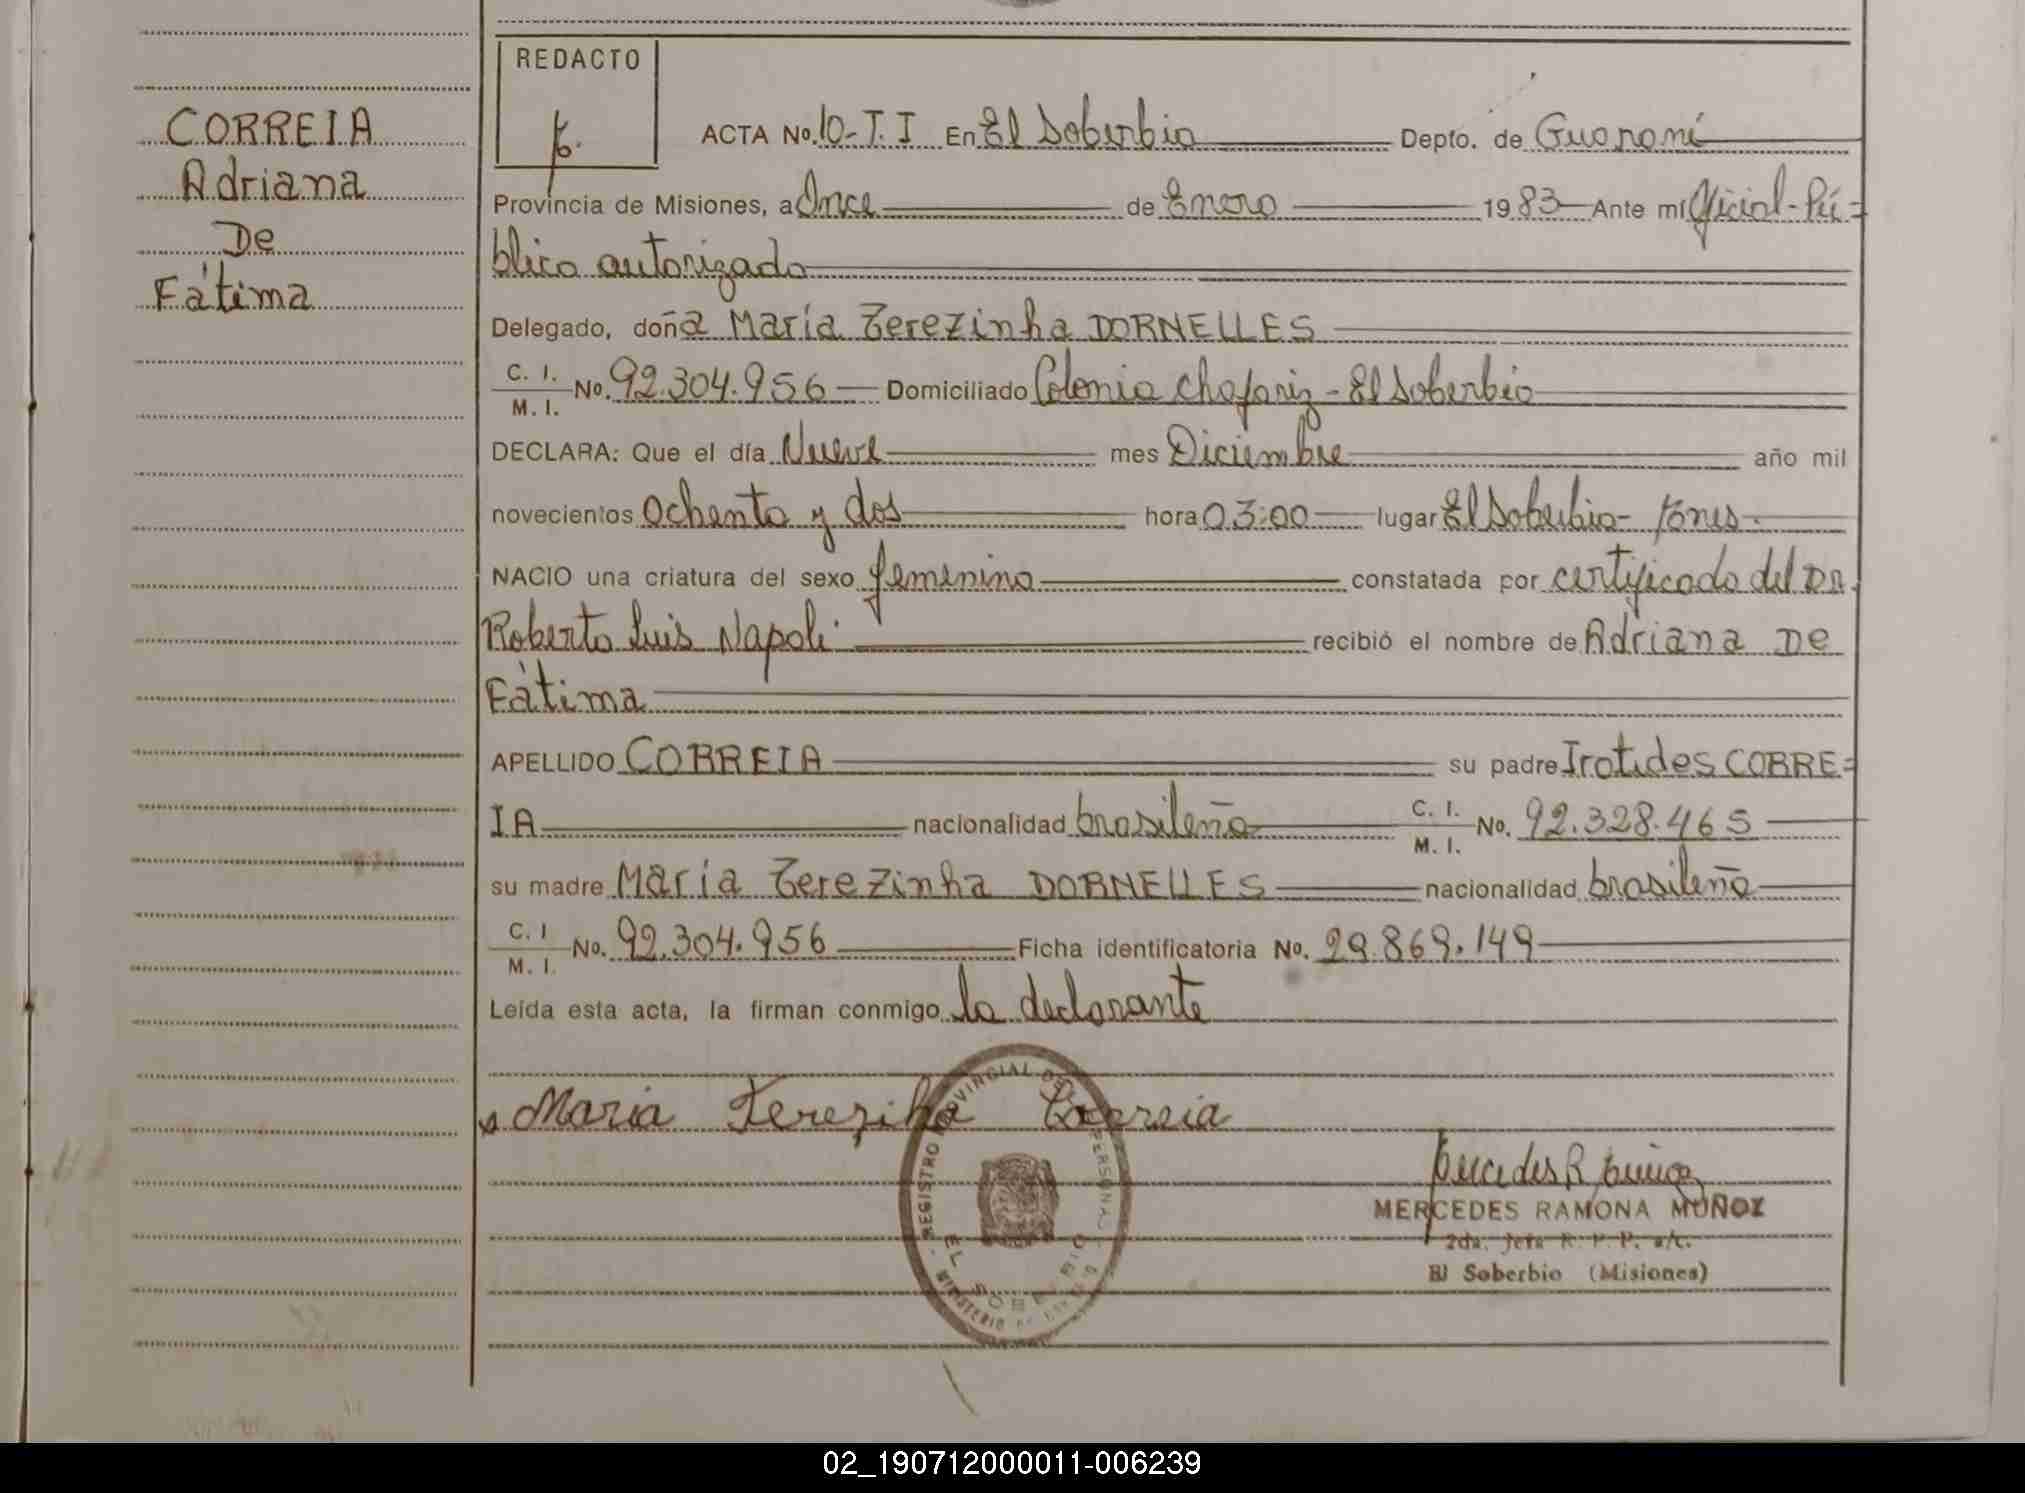 CORREIA
Adriana
De
Fátima
REDACTO
ACTA No. 10-T.I En El Soberbio Depto. de Guaraní
Provincia de Misiones, a Once de Enero 1983 Ante mí Oficial-Pú=
blico autorizado
Delegado, doña María Terezinha DORNELLES
C. I.
M. I. No. 92.304.956 Domiciliado Colonia Chafariz - El Soberbio
DECLARA: Que el día Nueve mes Diciembre año mil
novecientos Ochenta y dos hora 03:00 lugar El Soberbio-
NACIO una criatura del sexo femenino constatada por certificado del DR.
Roberto Luis Napoli recibió el nombre de Adriana De
Fátima
APELLIDO CORREIA su padre Irotides CORRE=
IA nacionalidad brasileña C. I.
M. I. No. 92.328.465
su madre María Terezinha DORNELLES nacionalidad brasileña
C. I
M. I. No. 92.304.956 Ficha identificatoria No. 29.869.149
Leída esta acta, la firman conmigo la declarante
Maria Tereziha Correia
REGISTRO PROVINCIAL DE PERSONAS
EL SOBERBIO
MINISTERIO DE
MERCEDES RAMONA MUÑOZ
2da. Jefa R. P. P. a/c.
El Soberbio (Misiones)
02_190712000011-006239